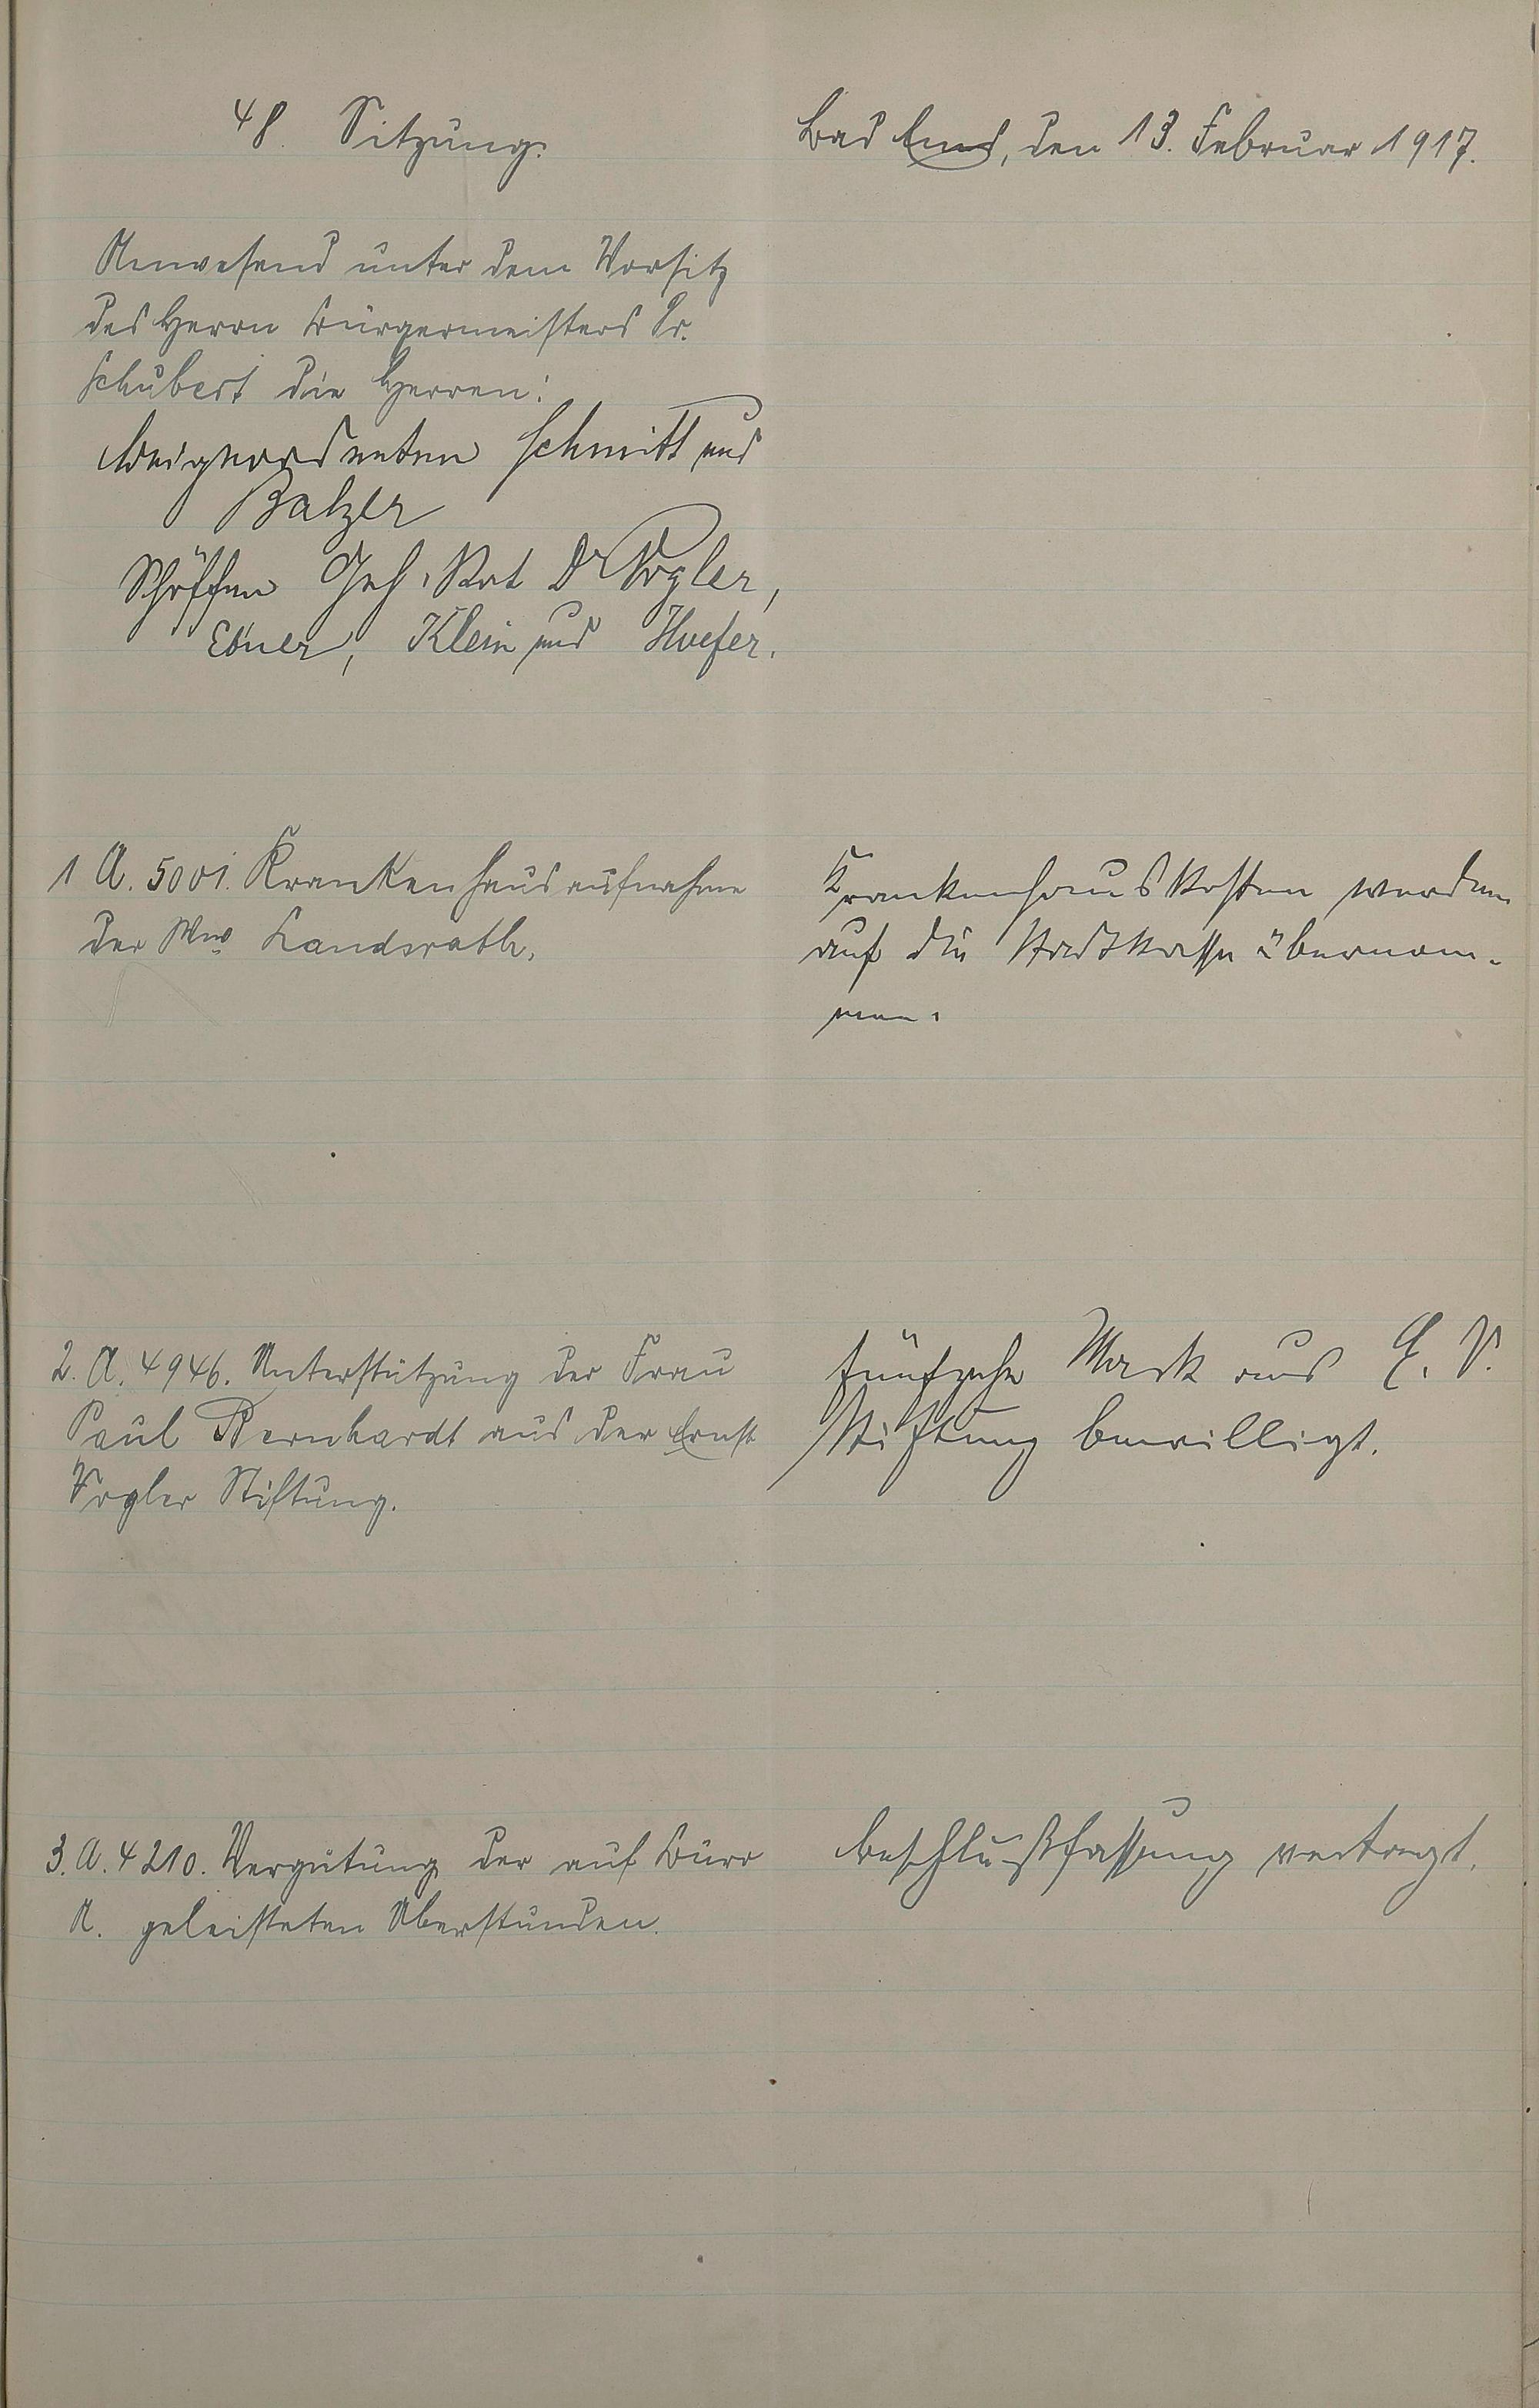 48. Sitzung.
Bad Ems, den 13. Februar 1917.
Anwesend unter dem Vorsitz
des Herrn Bürgermeisters Dr.
Schubert die Herren:
Beigeordneten Schmitt und
Balzer
Schöffen Geh. Rat Dr Vogler,
Ebner, Klein und Hoefer.
1 A. 5001. Krankenhausaufnahme
der Wwe Landsrath.
Krankenhauskosten werden
auf die Stadtkasse übernom-
men.
2. A. 4946. Unterstützung der Frau
Paul Bernhardt aus der Ernst
Vogler Stiftung.
fünfzehn Mark aus E. V.
Stiftung bewilligt.
3. A. 4210. Vergütung der auf Büro
A. geleisteten Überstunden.
Beschlußfassung vertagt.